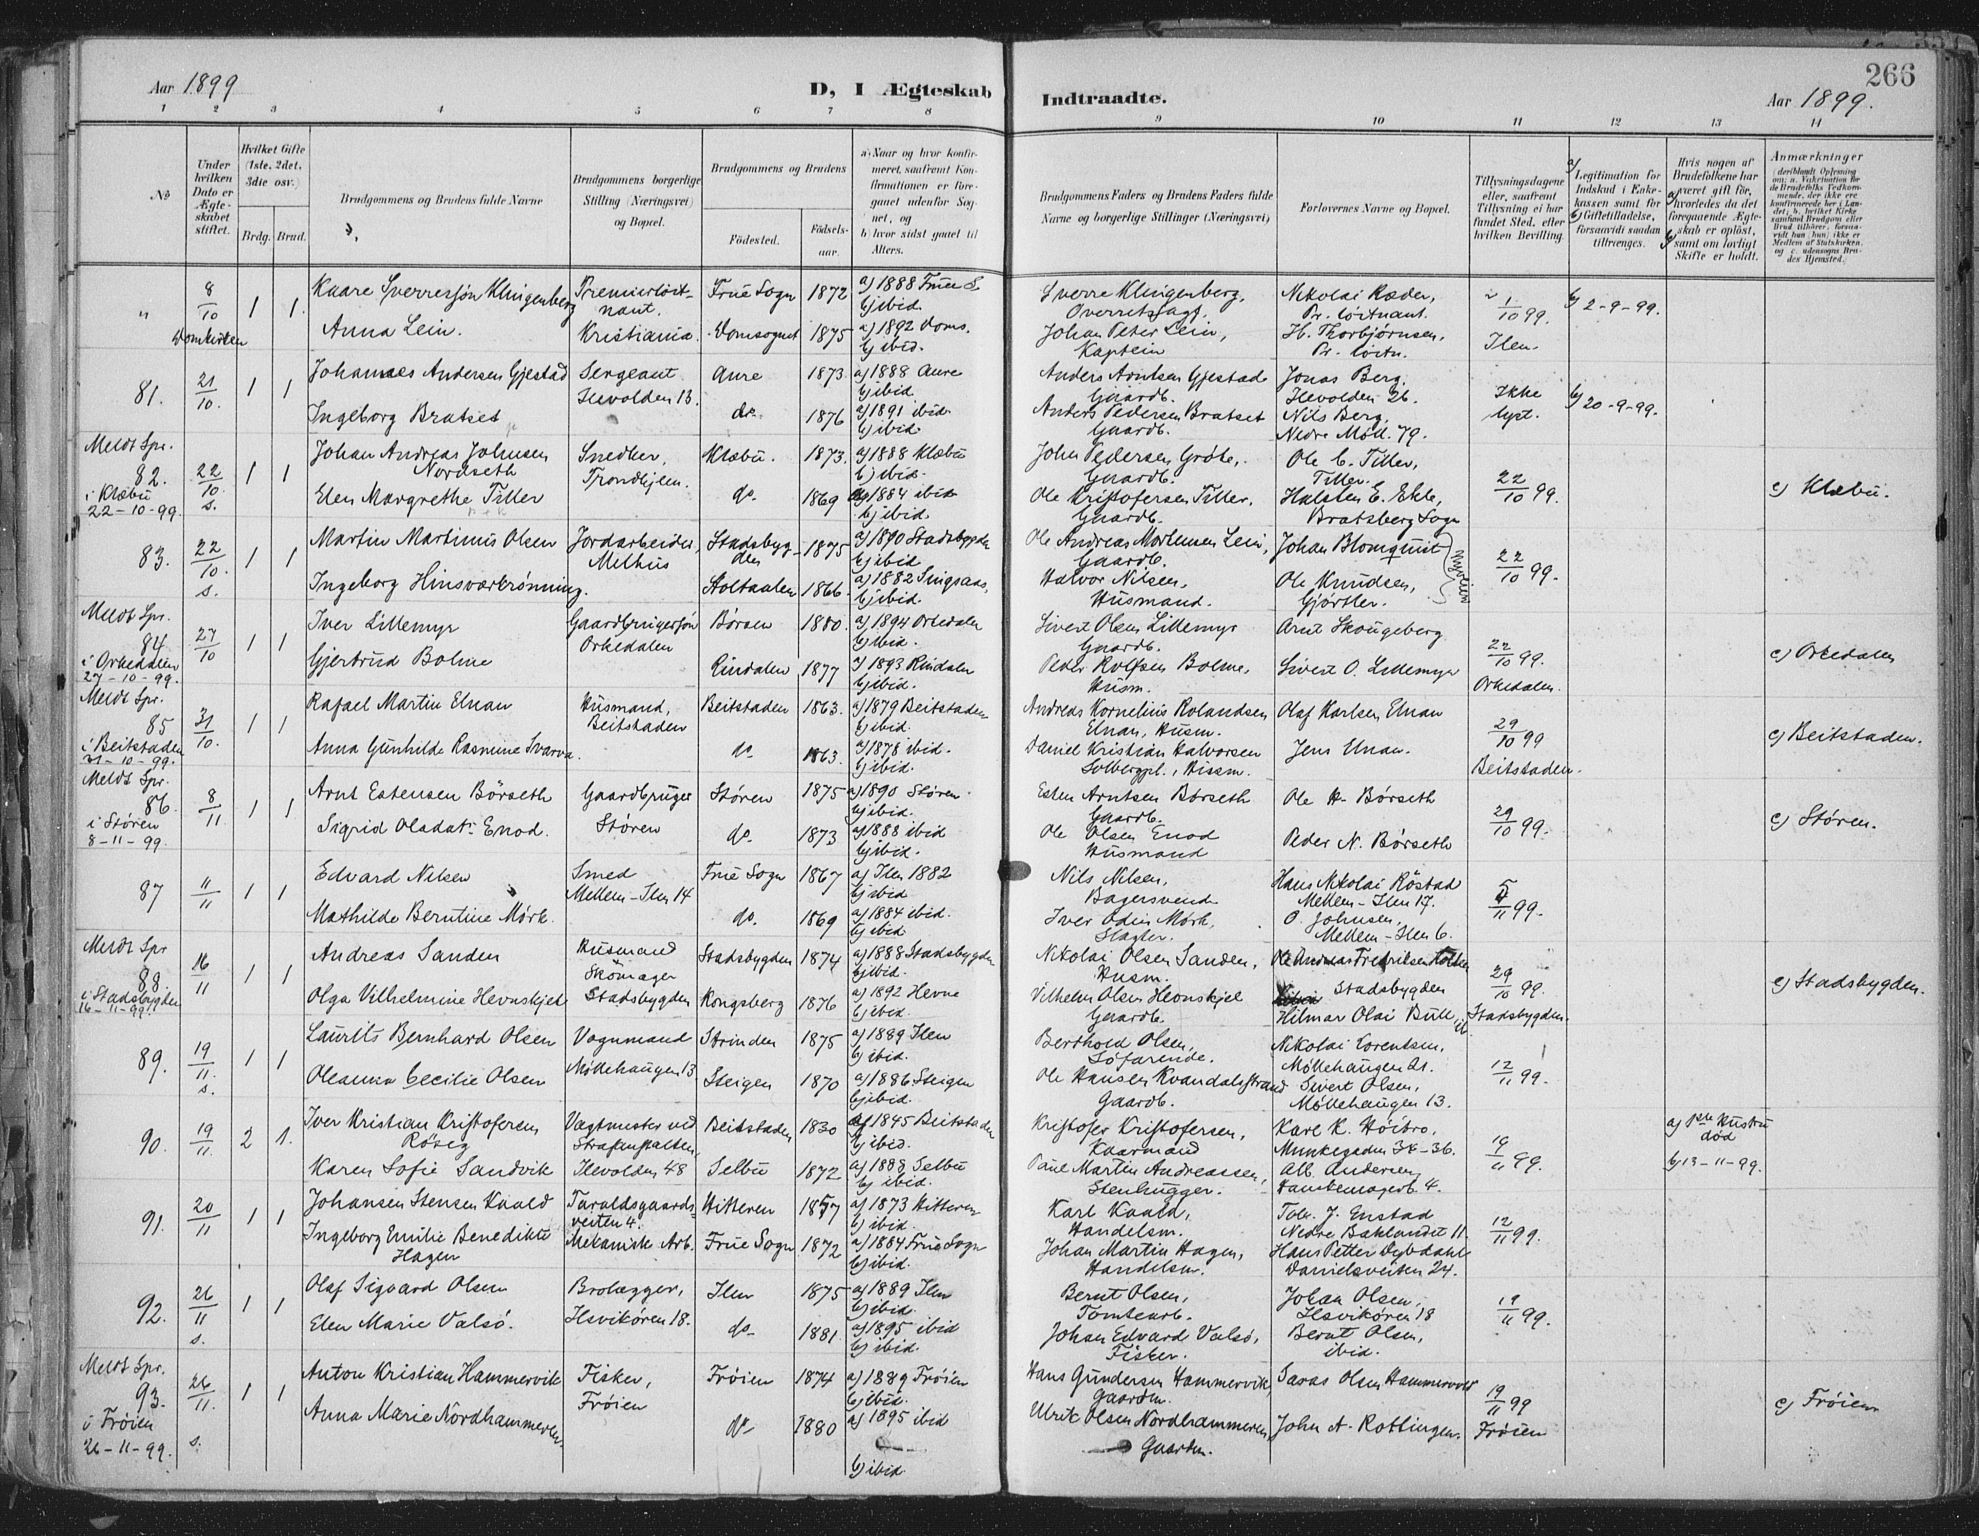 Aar 1899
D, I Ægteskab
Indtraadte.
266
Aar 1899.
1 2 3 4 5 6 7 8 9 10 11 12 13 14
No
Under hvilken Dato er Ægteskabet stiftet.
Hvilket Gifte (1ste, 2det, 3die osv.)
Brdg. Brud.
Brudgommens og Brudens fulde Navne
Brudgommens borgerlige Stilling (Næringsvei) og Bopæl.
Brudgommens og Brudens
Födested.
Födselsaar.
a) Naar og hvor konfirmeret, saafremt Konfirmationen er foregaaet udenfor Sognet, og
b) hvor sidst gaaet til Alters.
Brudgommens Faders og Brudens Faders fulde Navne og borgerlige Stillinger (Næringsvei)
Forlovernes Navne og Bopæl.
Tillysningsdagene eller, saafremt Tillysning ei har fundet Sted, efter hvilken Bevilling.
a) Legitimation for Indskud i Enkekassen samt for
b) Giftetilladelse, forsaavidt saadan tiltrænges.
Hvis nogen af Brudefolkene har været gift før,
a) hvorledes da det foregaaende Ægteskab er oplöst,
b) samt om lovligt Skifte er holdt.
Anmærkninger
(deriblandt Oplysning om: a. Vakcination for de Brudefolks Vedkommende, der ikke ere konfirmerede her i Landet; b. hvilket Kirkesamfund Brudgom eller Brud tilhörer, forsaavidt han (hun) ikke er Medlem af Statskirken, og c. udensogns Brudes Hjemsted.)
" 8/10 Domkirken 1 1.
Kaare Sverressøn Klingenberg Premierløitnant. Frue Sogn 1872 a) 1888 Frue S. b) ibid. Sverre Klingenberg, Overretssagf. Nikolai Ræder, Pr. løitnant. 1/10 99. b) 2-9-99.
Anna Lein. Kristiania. Domsognet 1875 a) 1892 Doms. b) ibid. Johan Peter Lein, Kaptein H. Thorbjørnsen, Pr. løitn. Ilen.
81. 21/10. 1 1
Johannes Andersen Gjestad Sergeant Ilevolden 13. Aure 1873. a) 1888 Aure b) ibid. Anders Arntsen Gjestad Gaardb. Jonas Berg, Ilevolden 26. Ikke lyst. b) 20-9-99.
Ingeborg Bratset do. 1876 a) 1891 ibid. b) ibid. Anders Pedersen Bratset Gaardb. Nils Berg, Nedre Møll. 79.
Meldt Spr. 82. i Klæbu 22-10-99. 22/10. s. 1 1
Johan Andreas Johnsen Nordseth Snedker, Trondhjem. Klæbu. 1873. a) 1888 Klæbu b) ibid. John Pedersen Grøte, Gaardb. Ole C. Tiller, Tiller. 22/10 99. c) Klæbu.
Elen Margrethe Tiller do. 1869 a) 1884 ibid b) ibid. Ole Kristofersen Tiller, Gaardb. Halsten E. Ekle, Bratsberg Sogn
83. 22/10. s. 1 1
Martin Martinus Olsen Jordarbeider, Melhus Stadsbygden 1875 a) 1890 Stadsbygden b) ibid Ole Andreas Mortensen Lein, Gaardb. Johan Blomquist 22/10 99.
Ingeborg Hinsværkrønning. Holtaalen 1866. a) 1882 Singsaas, b) ibid. Halvor Nilsen, Husmand. Ole Knudsen, Gjørtler.
Meldt Spr. 84 i Orkedalen 27-10-99. 27/10 1 1
Iver Lillemyr Gaardbrugersøn Orkedalen Børsen 1880. a) 1894 Orkedalen b) ibid. Sivert Olsen Lillemyr Gaardb. Arnt Skougeberg 22/10 99. c) Orkedalen
Gjertrud Bolme Rindalen 1877 a) 1893 Rindalen b) ibid. Peder Bolme, Husm. Sivert O. Lillemyr Orkedalen.
Meldt Spr. 85 i Beitstaden 31-10-99. 31/10. 1 1
Rafael Martin Elnan Husmand, Beitstaden Beitstaden 1863. a) 1879 Beitstaden b) ibid. Andreas Kornelius Rolandsen Elnan, Husm. Olaf Karlsen Elnan 29/10 99 c) Beitstaden.
Anna Gunhilde Rasmine Svarva. do. 1863. a) 1878 ibid. b) ibid. Daniel Kristian Halvorsen Solbergpl., Husm. Jens Elnan. Beitstaden.
Meldt Spr. 86. i Støren 8-11-99. 8/11 1 1
Arnt Estensen Börseth Gaardbruger Støren Støren 1875 a) 1890 Støren. b) ibid. Esten Arntsen Börseth Gaardb. Ole H. Börseth 29/10 99. c) Støren.
Sigrid Olsdat. Enod. do. 1873 a) 1888 ibid b) ibid. Ole Olsen Enod Husmand Peder N. Børseth
87 11/11 1 1
Edvard Nilsen Smed Mellem-Ilen 14 Frue Sogn 1867 a) Ilen 1882 b) ibid Nils Nilsen, Bagersvend Hans Nikolai Röstad Mellem-Ilen 17. 5/11 99.
Mathilde Berntine Mørk. do. 1869 a) 1884 ibid. b) ibid. Iver Odin Mørk, Slagter. O. Johnsen, Mellem-Ilen 6.
Meldt Spr 88. i Stadsbygden 16-11-99. 16/11 1 1
Andreas Sanden Husmand Skomager Stadsbygden Stadsbygden 1874 a) 1888 Stadsbygden b) ibid. Nikolai Olsen Sanden, Husm. Ole Andreas Fredriksen Stadsbygden 29/10 99. c) Stadsbygden.
Olga Vilhelmine Hevnskjel Kongsberg 1876 a) 1892 Hevne b) ibid. Vilhelm Olsen Hevnskjel Gaardb. Hilmar Olai Bull, Stadsbygden.
89. 19/11. s. 1 1
Laurits Bernhard Olsen Vognmand Möllehaugen 13 Strinden 1875 a) 1889 Ilen b) ibid. Berthold Olsen, Søfarende. Nikolai Lorentsen, Möllehaugen 21. 12/11 99.
Oleanna Cecilie Olsen Steigen 1870 a) 1886 Steigen b) ibid. Ole Hansen Kvandalsstrand Gaardb. Sivert Olsen, Möllehaugen 13.
90. 19/11. 2 1.
Iver Kristian Kristofersen Røseg Vagtmester ved Strafanstalten, Ilevolden 48 Beitstaden 1830 a) 1845 Beitstaden b) ibid. Kristofer Kristofersen, Kaarmand Karl K. Höibro, Munkegaden 34-36. 19/11 99. a) 1ste Hustru död
Karen Sofie Sandvik Selbu 1872 a) 1888 Selbu b) ibid. Paul Martin Andreassen, Stenhugger. Alb. Andersen, Hanskemagerb. 4. b) 13-11-99.
91. 20/11 1 1
Johansen Stensen Kaald Taraldsgaardsveiten 4. Mekanisk Arb. Hitteren 1857 a) 1873 Hitteren b) ibid. Karl Kaald, Handelsm. Tolv. J. Enstad Nedre Baklandet 11. 12/11 99.
Ingeborg Emilie Benedikte Hagen Frue Sogn 1872 a) 1884 Frue Sogn b) ibid. Johan Martin Hagen, Handelsm. Hans Petter Dybdahl Danielsveiten 24.
92. 26/11 s. 1 1
Olaf Sigvard Olsen Brolægger, Ilsvikören 18. Ilen 1875 a) 1889 Ilen b) ibid. Bernt Olsen, Tomtearb. Johan Olsen, Ilsvikören 18 19/11 99.
Elen Marie Valsö. do. 1881. a) 1895 ibid b) ibid. Johan Edvard Valsö, Fisker. Bernt Olsen, ibid.
Meldt Spr. 93. i Frøien 26-11-99. 26/11. s. 1 1
Anton Kristian Hammervik Fisker, Frøien Frøien 1874 a) 1889 Frøien b) ibid. Hans Gundersen Hammervik, Gaardm. Saras Olsen Hammervold 19/11 99 c) Frøien
Anna Marie Nordhammeren. do. 1880 a) 1895 ibid b) ibid. Ulrik Olsen Nordhammeren, Gaardm. John A. Rottingen. Frøien